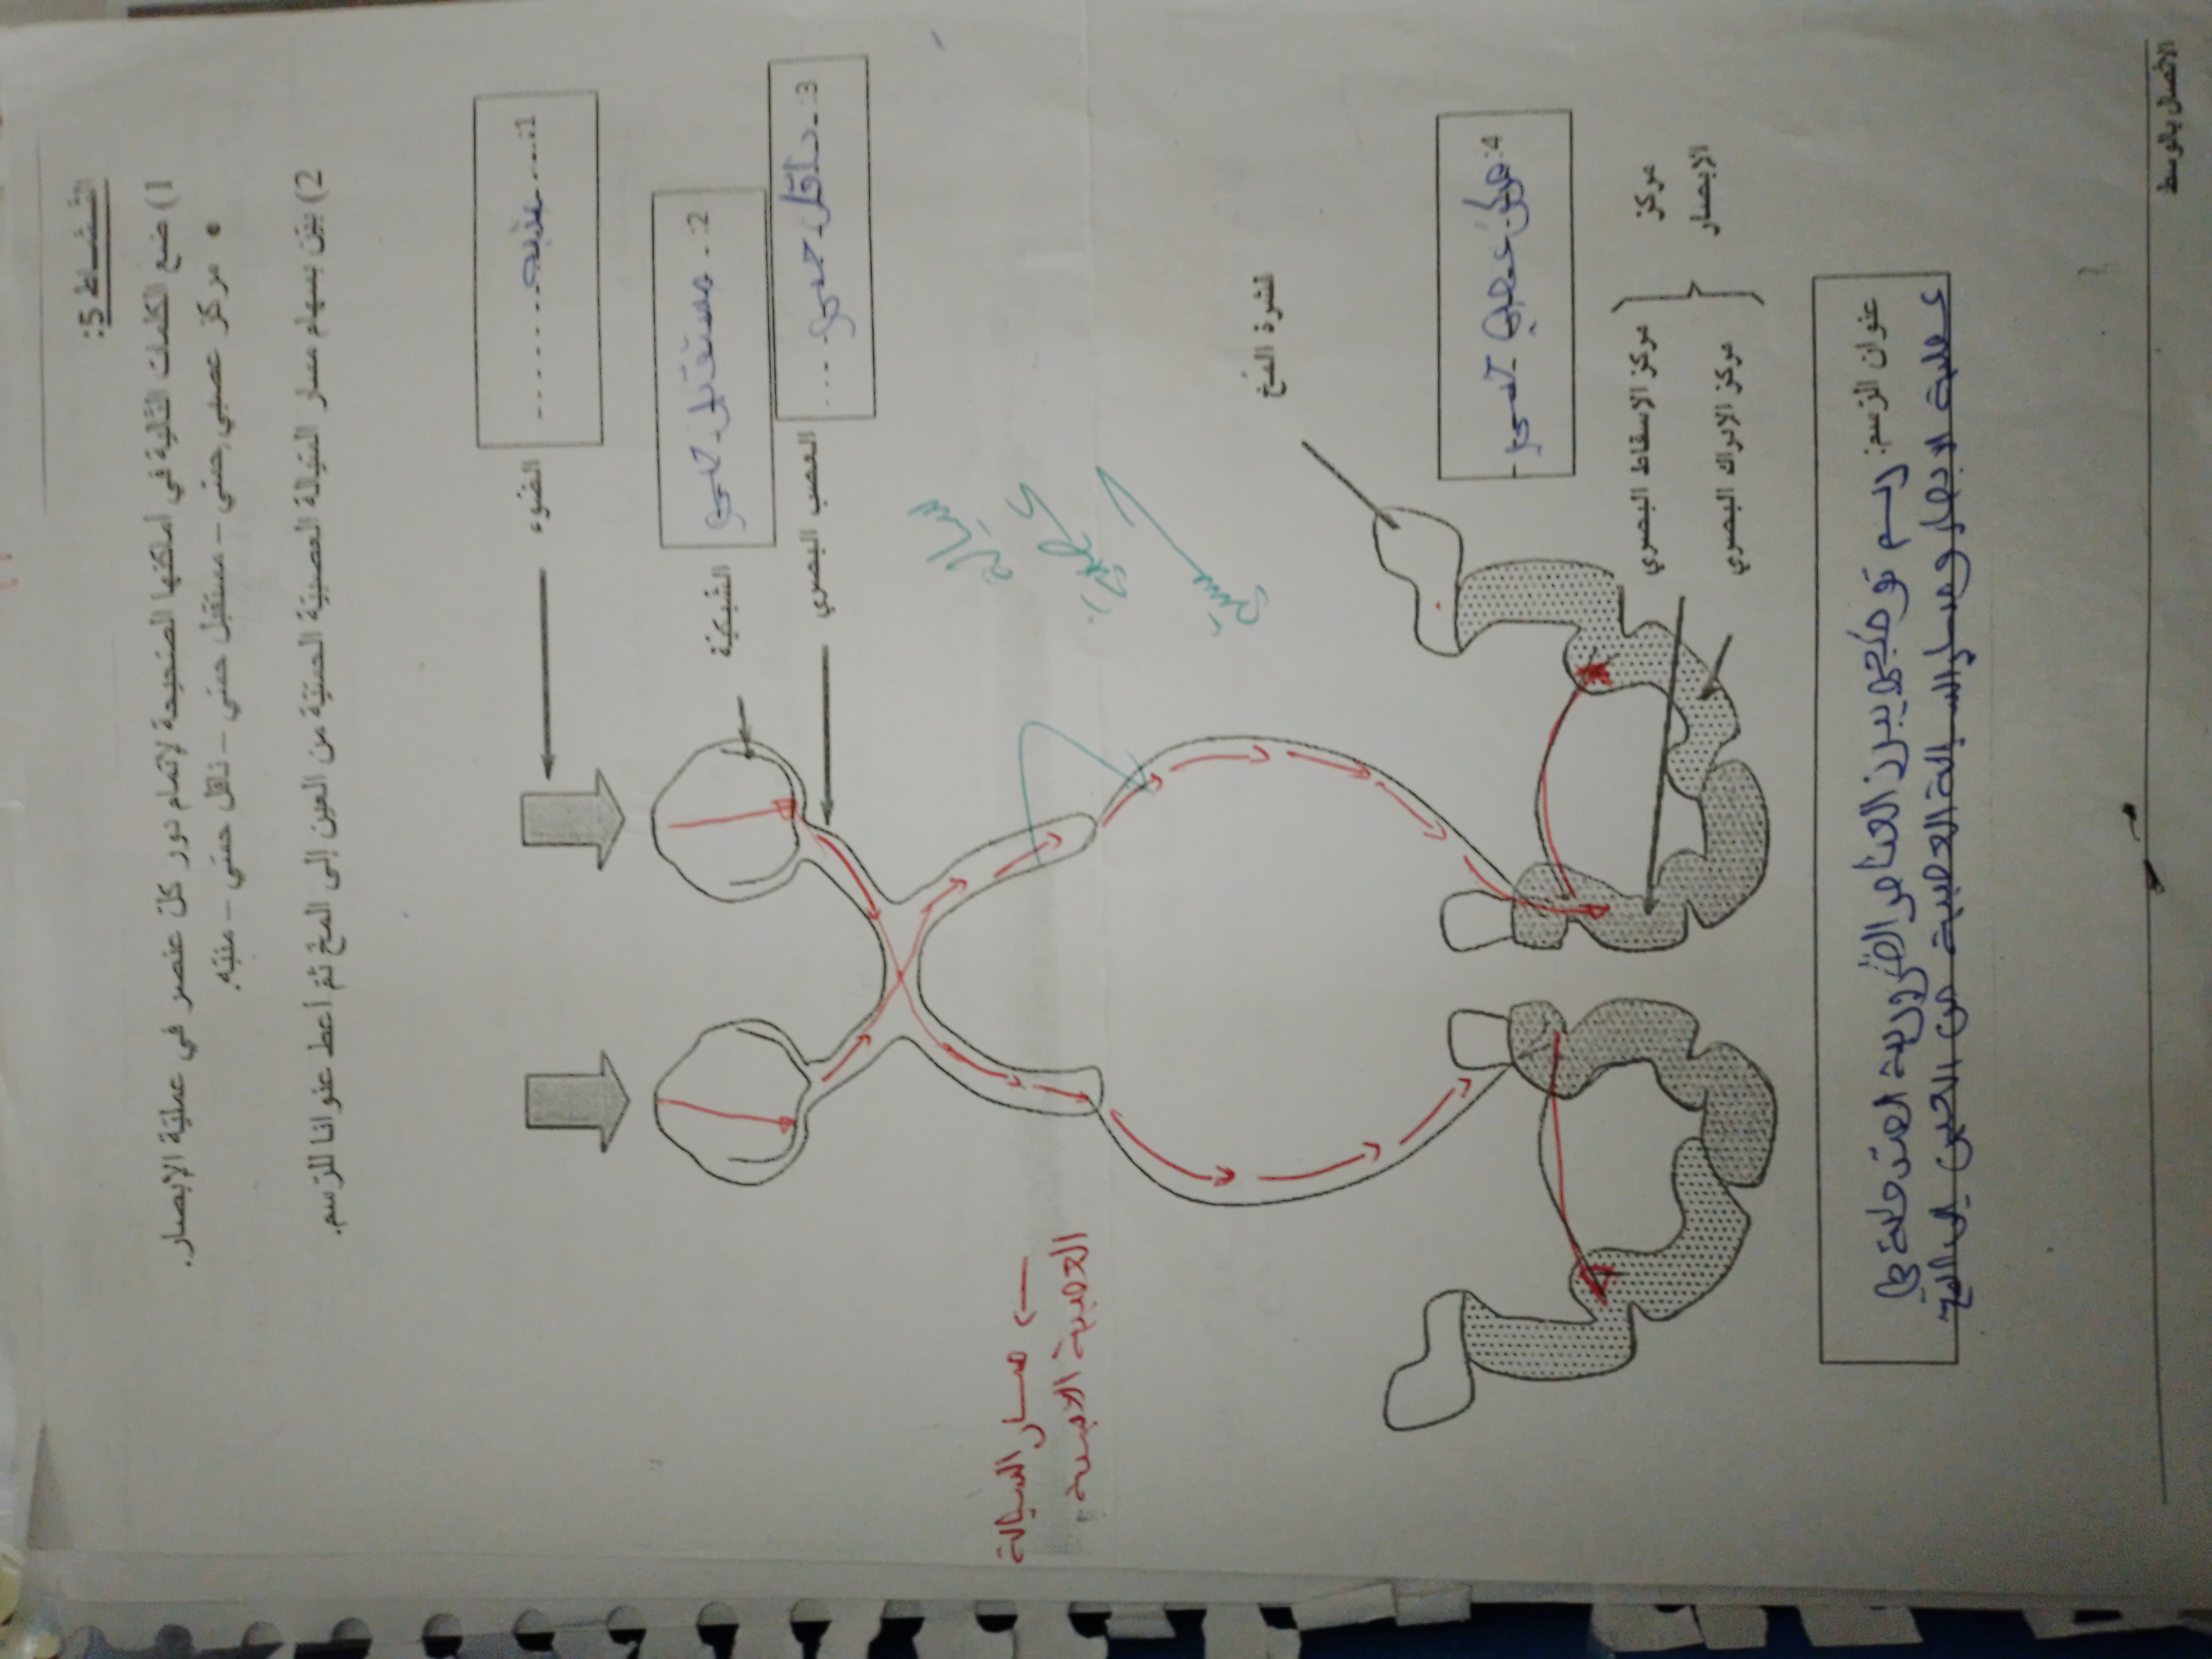 النشاط 5:
1) ضع الكلمات التالية في أماكنها الصحيحة لإتمام دور كل عنصر في عملية الإبصار.
• مركز عصبي حسي – مستقبل حسي – ناقل حسي – منبه.
2) بين بسهام مسار السيالة العصبية الحسية من العين إلى المخ ثم أعط عنوانا للرسم.
1: منبه
الضوء
2: مستقبل حسي
الشبكية
3: ناقل حسي
العصب البصري
سيالة
عصبية
حسية
← مسار السيالة
العصبية الحسية
قشرة المخ
4: مركز عصبي حسي
مركز الإسقاط البصري
مركز الإدراك البصري
مركز
الإبصار
عنوان الرسم: رسم توضيحي يبرز العناصر الضرورية المتدخلة في
عملية الإبصار ومسار السيالة العصبية من العين إلى المخ
الاتصال بالوسط